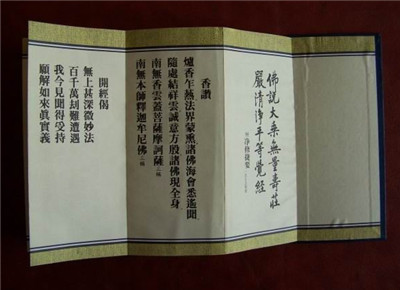 佛說大乘無量壽莊
嚴清淨平等覺經
淨修捷要
香讚
爐香乍爇法界蒙熏諸佛海會悉遙聞
隨處結祥雲誠意方殷諸佛現全身
南無香雲蓋菩薩摩訶薩三稱
南無本師釋迦牟尼佛三稱
開經偈
無上甚深微妙法
百千萬劫難遭遇
我今見聞得受持
願解如來眞實義